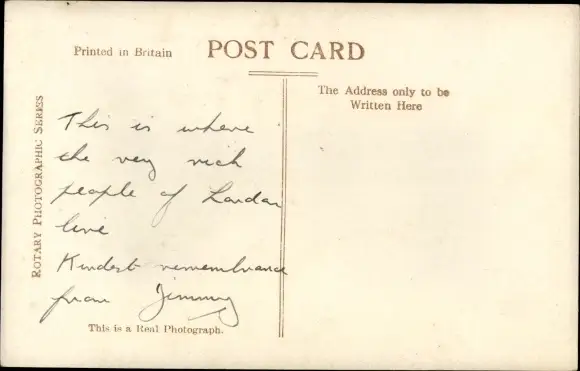 Printed in Britain
POST CARD
The Address only to be
Written Here
ROTARY PHOTOGRAPHIC SERIES
This is where
the very rich
people of London
live
Kindest remembrance
from Jimmy
This is a Real Photograph.